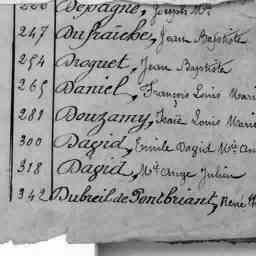 Depagne, Joseph M.
247 Dufraiche, Jean Baptiste
254 Droguet, Jean Baptiste
265 Daniel, François Louis Mari
281 Douzamy, Louis Marie
300 Dagid, Emile Dagid M.
318 Dagid, Ange Julien
342 Dubreil de Pontbriant, René